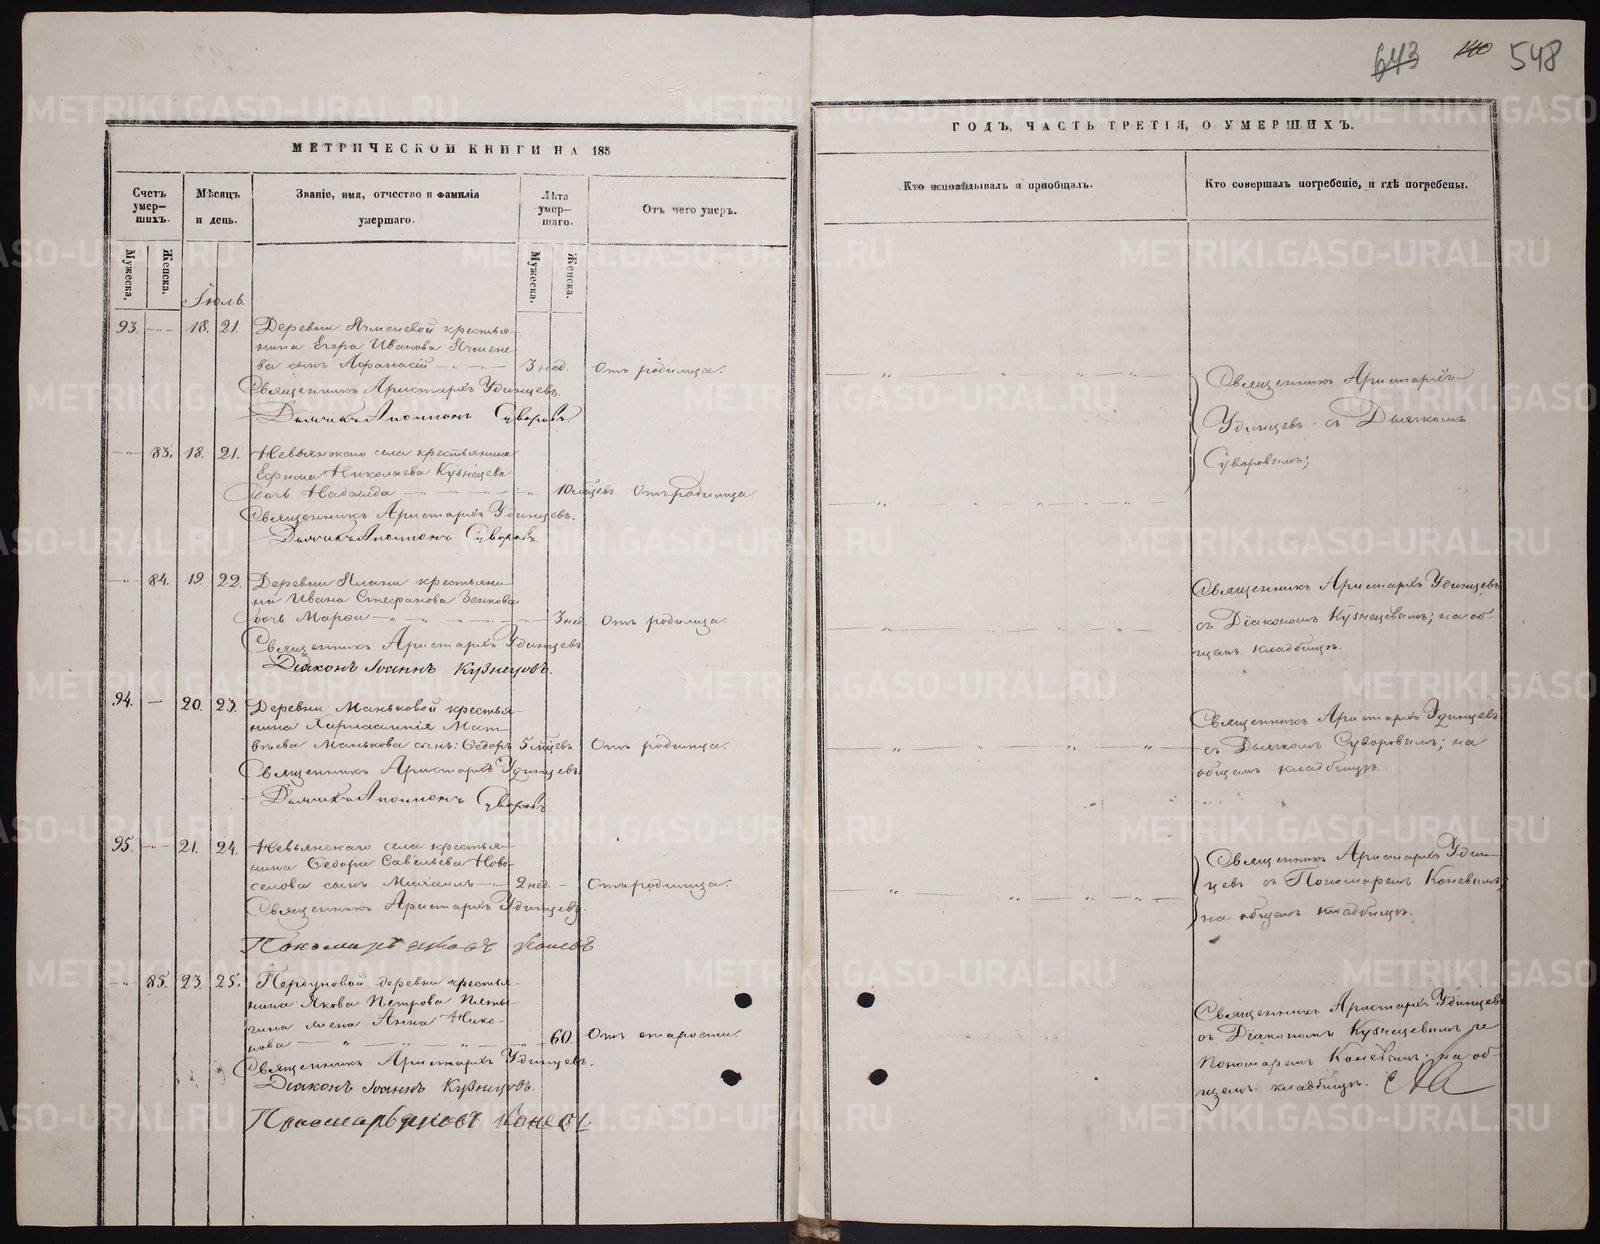 643 140 548
МЕТРИЧЕСКОЙ КНИГИ НА 185
ГОДЪ, ЧАСТЬ ТРЕТІЯ, О УМЕРШИХЪ.
Счетъ умер-шихъ.
Мѣсяцъ и день.
Званіе, имя, отчество и фамилія умершаго.
Лѣта умер-шаго.
Отъ чего умеръ.
Кто исповѣдывалъ и пріобщалъ.
Кто совершалъ погребеніе, и гдѣ погребены.
Мужеска. Женска.
Мужеска. Женска.
Іюль.
93. 18. 21. Деревни Ячменевой крестья-
нина Егора Иванова Ячмене-
ва сынъ Афанасій 3 нед. Отъ родимца.
Священникъ Аристархъ Удинцевъ.
Дьячикъ Аполлонъ Суворовъ.
Священникъ Аристархъ
Удинцевъ съ Дьячкомъ
Суворовымъ;
83. 18. 21. Невьянскаго села крестьянина
Ефима Николаева Кузнецова
дочь Надежда 10 мѣсцевъ. Отъ родимца
Священникъ Аристархъ Удинцевъ.
Дьячикъ Аполлонъ Суворовъ.
84. 19. 22. Деревни Ялани крестьяни-
на Ивана Стефанова Зенкова
дочь Марфа 3 нед. Отъ родимца.
Священникъ Аристархъ Удинцевъ.
Діаконъ Іоаннъ Кузнецовъ.
Священникъ Аристархъ Удинцевъ
съ Діакономъ Кузнецовымъ; на об-
щемъ кладбищѣ.
94. 20. 23. Деревни Маньковой крестья-
нина Харлампія Мат-
вѣева Манькова сынъ: Ѳедоръ 5 мѣсцевъ Отъ родимца.
Священникъ Аристархъ Удинцевъ.
Дьячикъ Аполлонъ Суворовъ
Священникъ Аристархъ Удинцевъ
съ Дьячкомъ Суворовымъ; на
общемъ кладбищѣ.
95. 21. 24. Невьянскаго села крестья-
нина Ѳедора Савельева Ново-
селова сынъ Михаилъ 2 нед. Отъ родимца.
Священникъ Аристархъ Удинцевъ.
Пономарь Коневъ
Священникъ Аристархъ Удин-
цевъ съ Пономаремъ Коневымъ;
на общемъ кладбищѣ.
85. 23. 25. Пердуновой деревни крестья-
нина Якова Петрова
жена Анна Нико-
нова 60. Отъ старости.
Священникъ Аристархъ Удинцевъ.
Діаконъ Іоаннъ Кузнецовъ.
Пономарь Коневъ
Священникъ Аристархъ Удинцевъ
съ Діакономъ Кузнецовымъ и
Пономаремъ Коневымъ; на об-
щемъ кладбищѣ.
METRIKI.GASO-URAL.RU